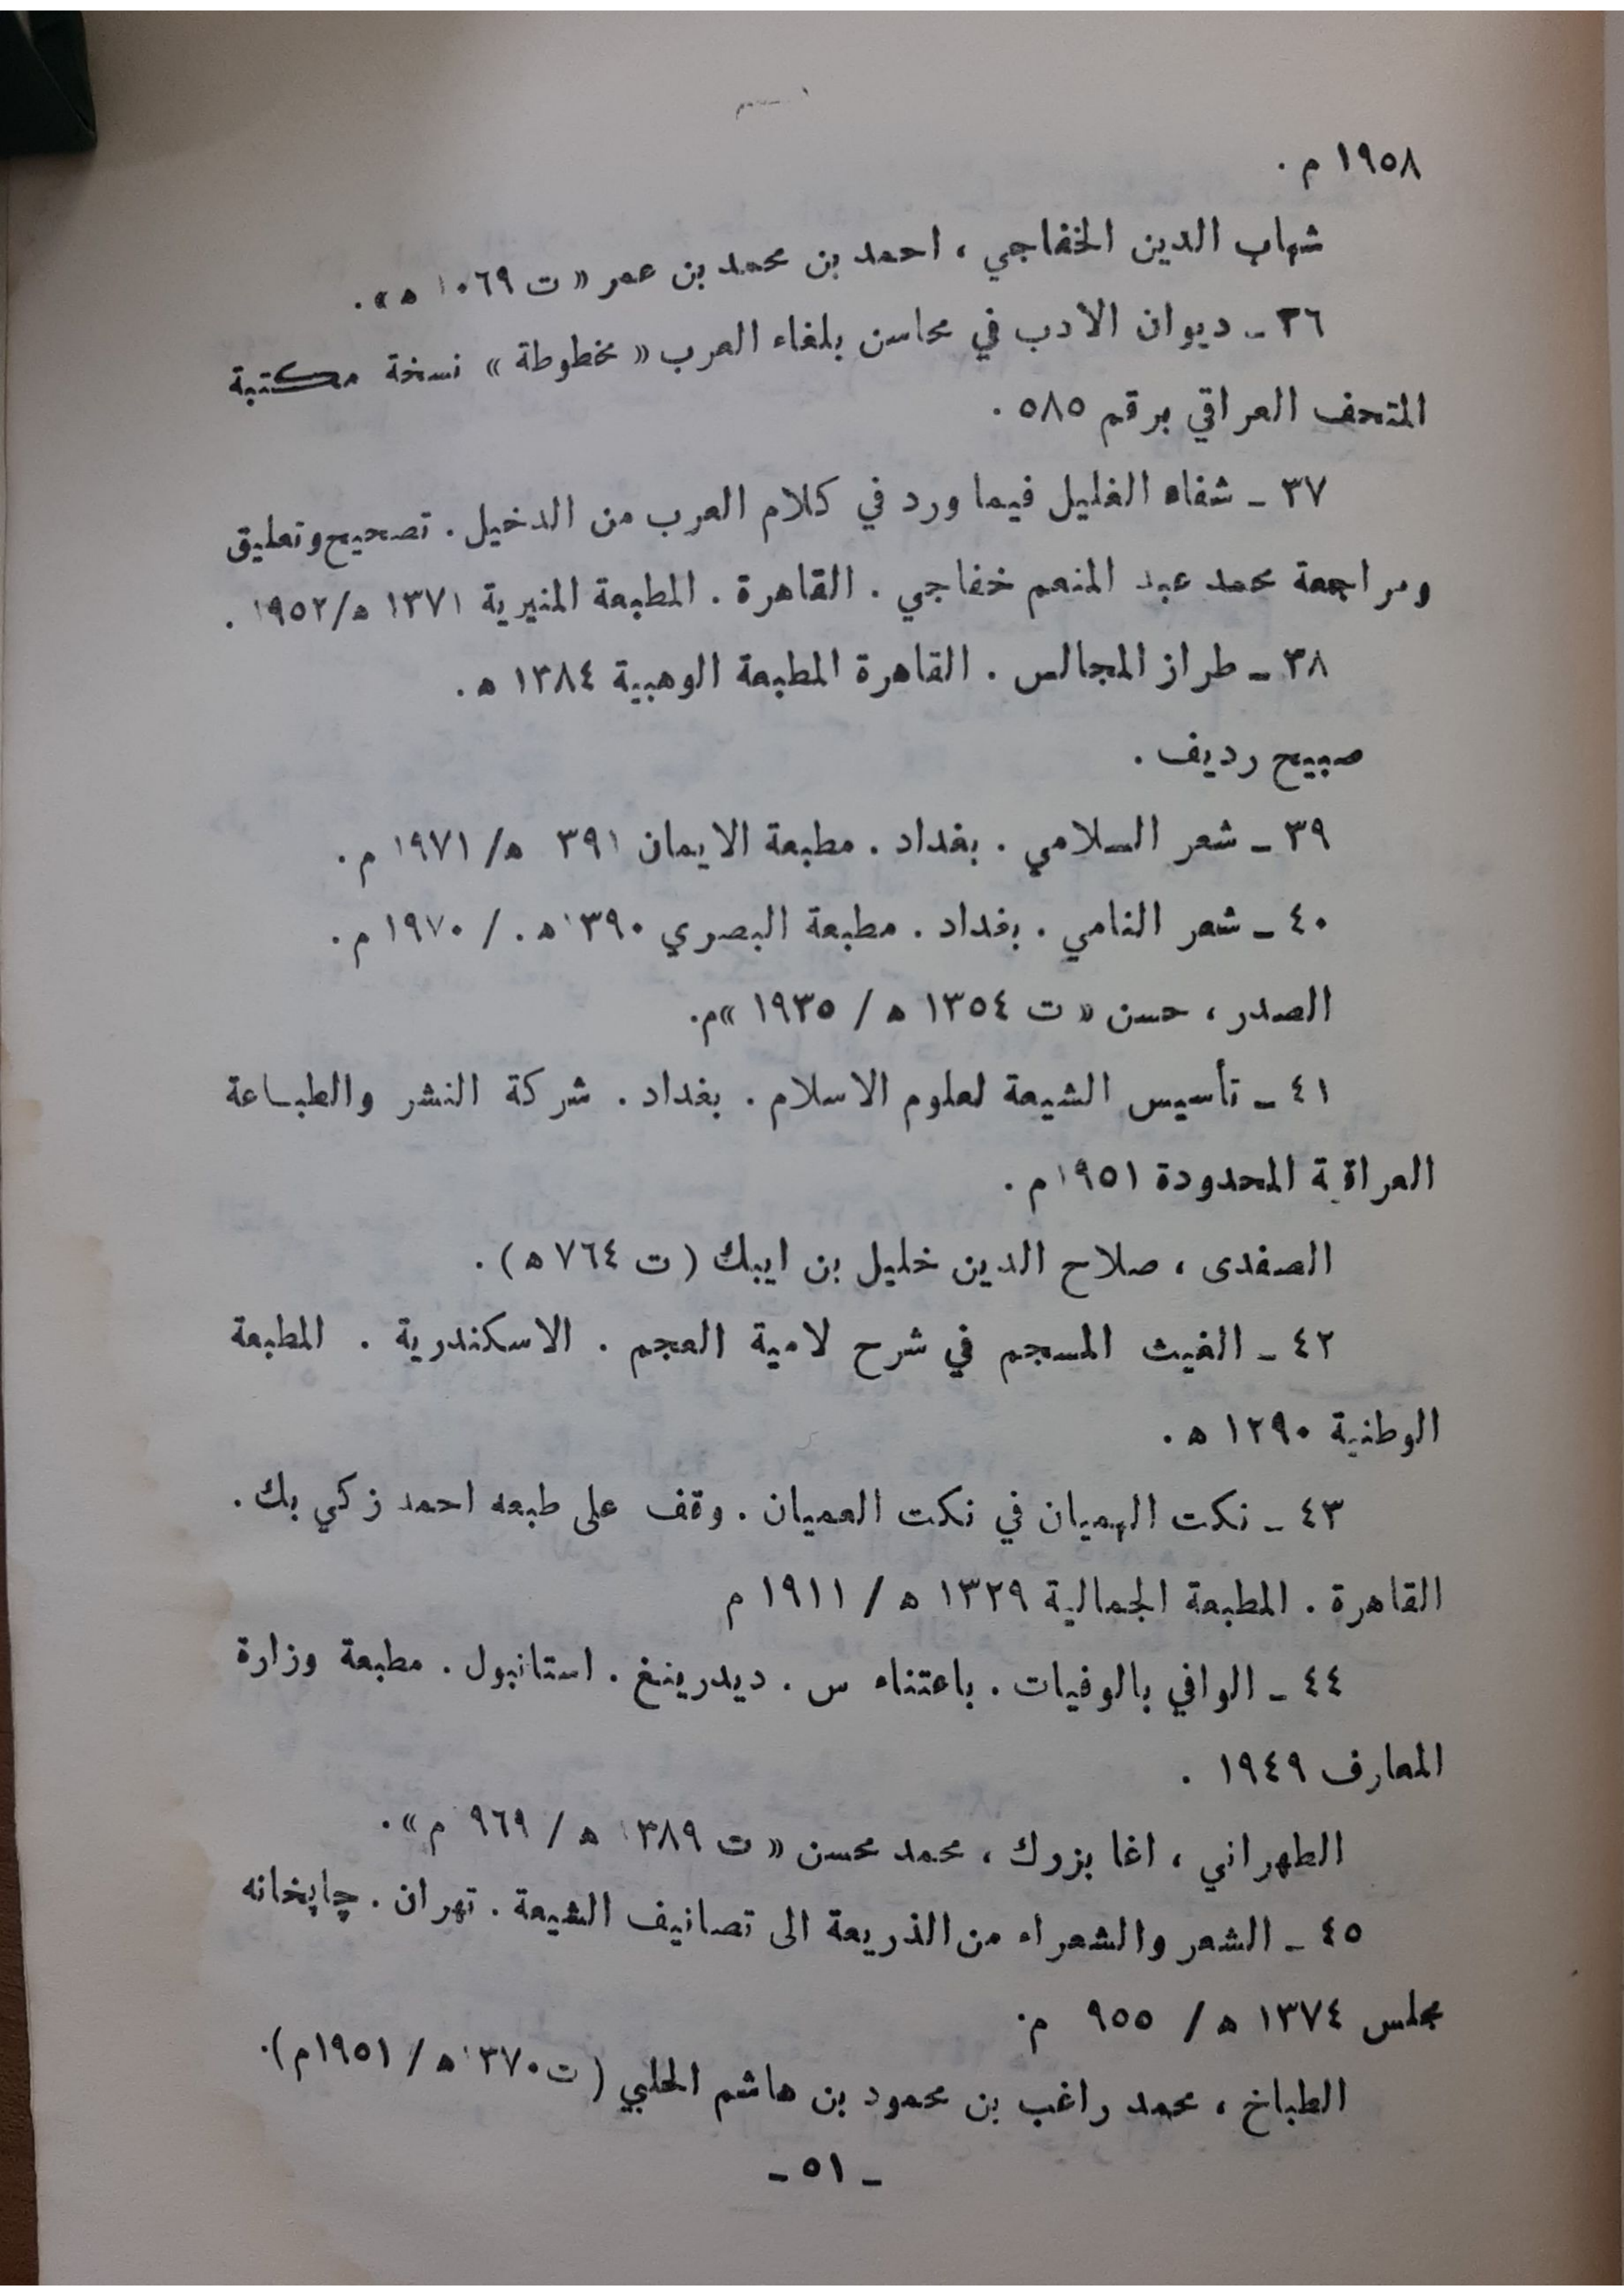 ١٩٥٨ م .
شهاب الدين الخفاجي ، احمد بن محمد بن عمر « ت ١٠٦٩ ه» .
٣٦ ـ ديوان الادب في محاسن بلغاء العرب « مخطوطة » نسخة مكتبة
المتحف العراقي برقم ٥٨٥ .
٣٧ ـ شفاء الغليل فيما ورد في كلام العرب من الدخيل . تصحيح وتعليق
ومراجعة محمد عبد المنعم خفاجي . القاهرة . المطبعة المنيرية ١٣٧١ ه/١٩٥٢ .
٣٨ ـ طراز المجالس . القاهرة المطبعة الوهبية ١٣٨٤ ه .
صبيح رديف .
٣٩ ـ شعر السلامي . بغداد . مطبعة الايمان ٣٩١ ه/ ١٩٧١ م .
٤٠ ـ شعر النامي . بغداد . مطبعة البصري ١٣٩٠ ه . / ١٩٧٠ م .
الصدر ، حسن « ت ١٣٥٤ ه / ١٩٣٥ »م .
٤١ ـ تأسيس الشيعة لعلوم الاسلام . بغداد . شركة النشر والطباعة
العراقية المحدودة ١٩٥١ م .
الصفدى ، صلاح الدين خليل بن ايبك ( ت ٧٦٤ ه ) .
٤٢ ـ الغيث المسجم في شرح لامية العجم . الاسكندرية . المطبعة
الوطنية ١٢٩٠ ه .
٤٣ ـ نكت الهميان في نكت العميان . وقف على طبعه احمد زكي بك .
القاهرة . المطبعة الجمالية ١٣٢٩ ه / ١٩١١ م
٤٤ ـ الوافي بالوفيات . باعتناء س . ديدرينغ . استانبول . مطبعة وزارة
المعارف ١٩٤٩ .
الطهراني ، اغا بزرك ، محمد محسن « ت ١٣٨٩ ه / ٩٦٩ م » .
٤٥ ـ الشعر والشعراء من الذريعة الى تصانيف الشيعة . تهران . چاپخانه
مجلس ١٣٧٤ ه / ٩٥٥ م .
الطباخ ، محمد راغب بن محمود بن هاشم الحلبي ( ت ١٣٧٠ ه / ١٩٥١م ) .
ـ ٥١ ـ